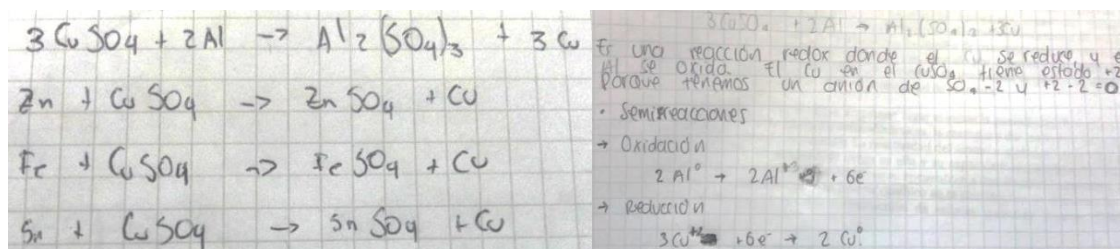 3CuSO4 + 2Al -> Al2(SO4)3 + 3Cu
Zn + CuSO4 -> ZnSO4 + Cu
Fe + CuSO4 -> FeSO4 + Cu
Sn + CuSO4 -> SnSO4 + Cu
3CuSO4 + 2Al → Al2(SO4)3 + 3Cu
Es una reacción redox donde el Cu se reduce, y e
Al se oxida. El Cu en el CuSO4 tiene estado +2
Porque tenemos un anión de SO4 -2 y +2 -2 = 0
• Semirreacciones
→ Oxidación
2Al⁰ → 2Al⁺³ + 6e⁻
→ Reducción
3Cu⁺² + 6e⁻ → 2Cu⁰